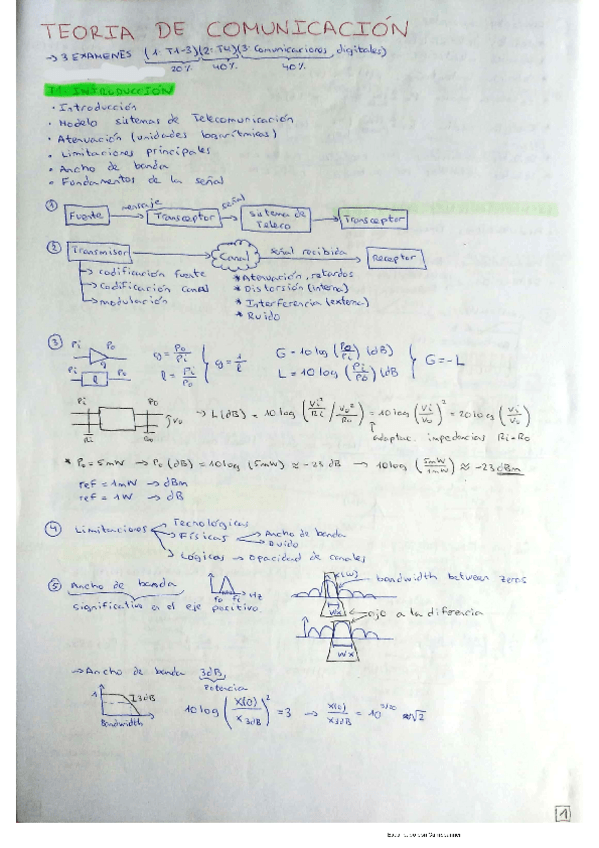 TEORIA DE COMUNICACIÓN
→ 3 EXAMENES (1: T1-3)(2: T4)(3: Comunicaciones digitales)
20% 40% 40%
T1. INTRODUCCIÓN
• Introducción
• Modelo sistemas de Telecomunicación
• Atenuación (unidades logarítmicas)
• Limitaciones principales
• Ancho de banda
• Fundamentos de la señal
① Fuente mensaje Transceptor señal Sistema de Teleco Transceptor
② Transmisor Canal señal recibida Receptor
→ codificación fuente * Atenuación, retardos
→ codificación canal * Distorsión (interna)
→ modulación * Interferencia (externa)
* Ruido
③ Pi Po g g = Po/Pi g = 1/l G = 10 log (Po/Pi) (dB) G = -L
Pi l Po l = Pi/Po L = 10 log (Pi/Po) (dB
Pi Po Ri Vo → L(dB) = 10 log (Vi²/Ri / Vo²/Ro) = 10 log (Vi/Vo)² = 20 log (Vi/Vo)
adaptac. impedancias Ri=Ro
* Po = 5mW → Po (dB) = 10 log (5mW) ≈ -23 dB → 10 log (5mW/1mW) ≈ -23 dBm
ref = 1mW → dBm
ref = 1W → dB
④ Limitaciones Tecnológicas
→ Físicas Ancho de banda
Ruido
→ Lógicas → Capacidad de canales
⑤ Ancho de banda Hz X(w) bandwidth between zeros
significativo en el eje positivo. wx eje a la diferencia
wx
→ Ancho de banda 3dB
Potencia
1 3dB 10 log (X(0)/X3dB)² = 3 → X(0)/X3dB = 10^3/20 ≈ √2
Bandwidth
1